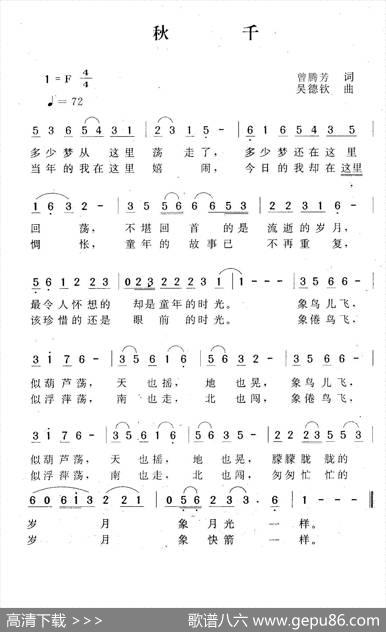 秋 千
1 = F 4/4
曾腾芳 词
♩= 72
吴德钦 曲
5 3 6 5 4 3 1 | 2 3 1 5 - | 6 1 6 5 4 3 5 |
多少梦从 这里 荡 走了, 多少梦还在这里
当年的我在这里 嬉 闹, 今日的我却在这里
回 荡, 不堪回首 的是 流逝的岁月,
惆 怅, 童年的 故事已 不再重复,
最令人怀想的 却是童年的时光。 象鸟儿飞,
该珍惜的还是 眼前的时光。 象倦鸟飞,
3 1 7 6 - | 3 5 6 1 6 | 5 6 1 5 - | 3 5 1 6 - |
似葫芦荡, 天 也摇, 地 也晃, 象鸟儿飞,
似浮萍荡, 南 也走, 北 也闯, 象倦鸟飞,
3 1 7 6 - | 3 5 6 1 6 | 5 6 1 5 - | 2 2 2 3 5 5 |
似葫芦荡, 天 也摇, 地 也晃, 朦朦胧胧的
似浮萍荡, 南 也走, 北 也闯, 匆匆忙忙的
岁 月 象 月光 一 样。
岁 月 象 快箭 一 样。
高清下载 >>>
歌谱八六 www.gepu86.com